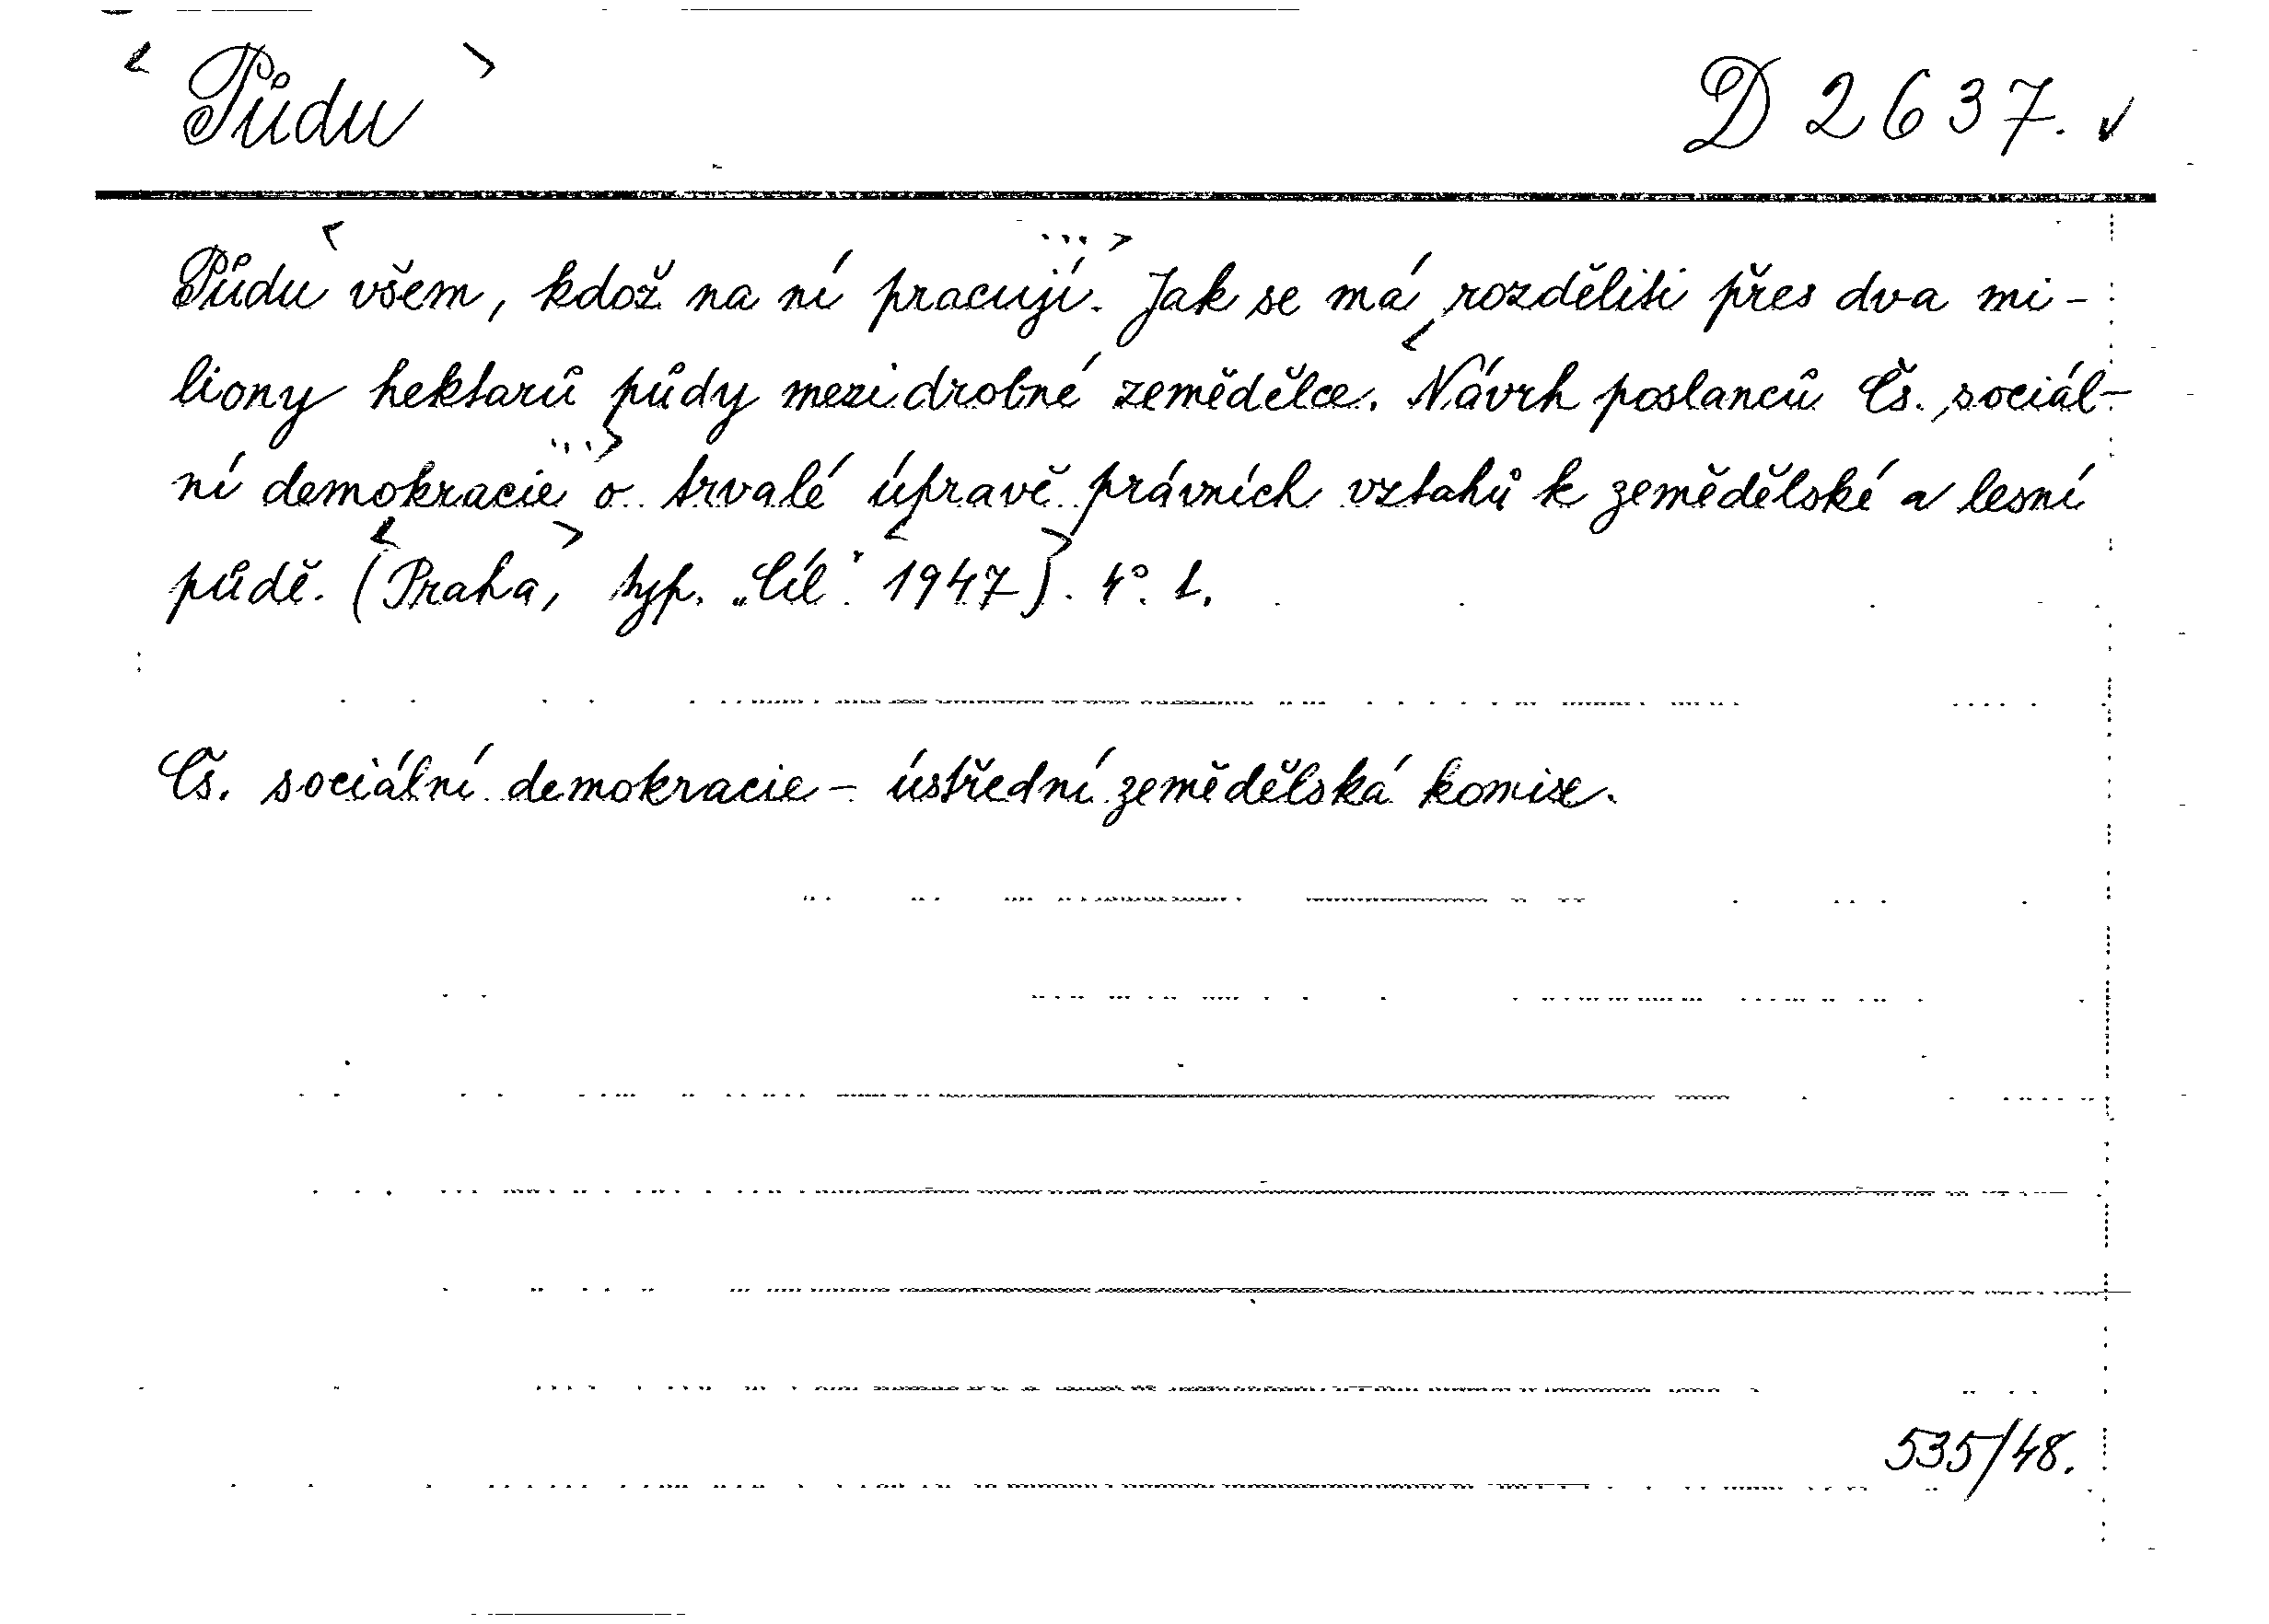 Půdu D 2637. ✓
Půdu všem, kdož na ní pracují. Jak se má rozděliti přes dva mi-
liony hektarů půdy mezi drobné zemědělce. Návrh poslanců Čs. sociál-
ní demokracie o trvalé úpravě právních vztahů k zemědělské a lesní
půdě. (Praha, typ. „Cíl" 1947). 4°. l.
Čs. sociální demokracie - ústřední zemědělská komise.
535/48.